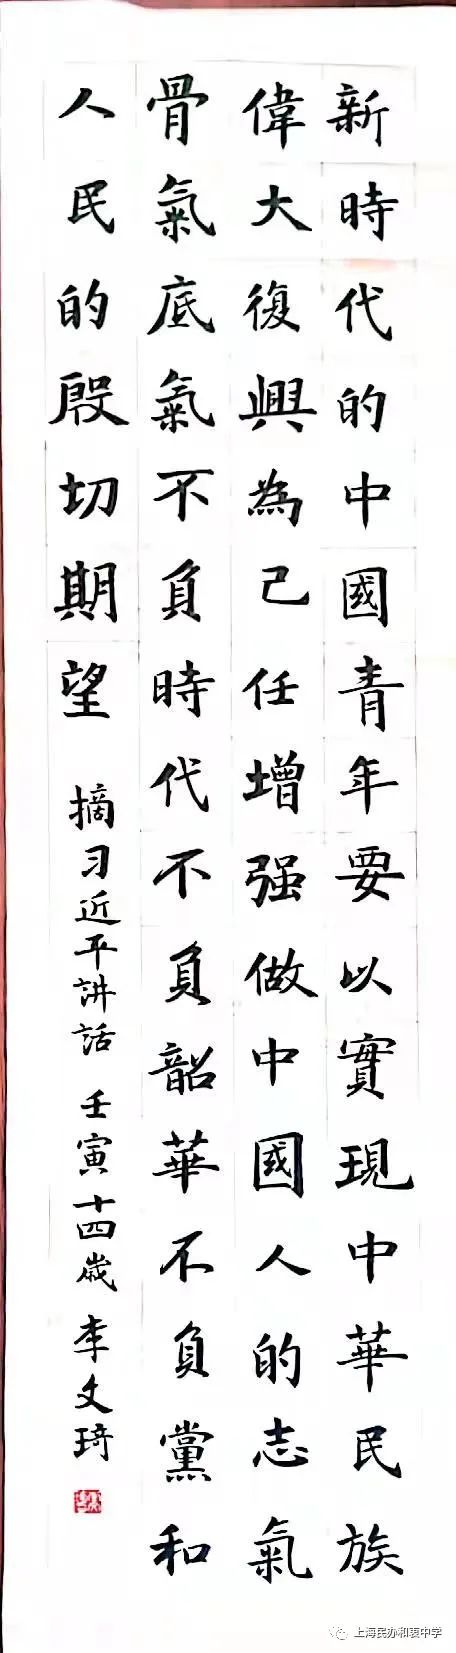 新時代的中國青年要以實現中華民族
偉大復興為己任增强做中國人的志氣
骨氣底氣不負時代不負韶華不負黨和
人民的殷切期望
摘习近平讲話 壬寅十四歲 李文琦
上海民办和衷中学